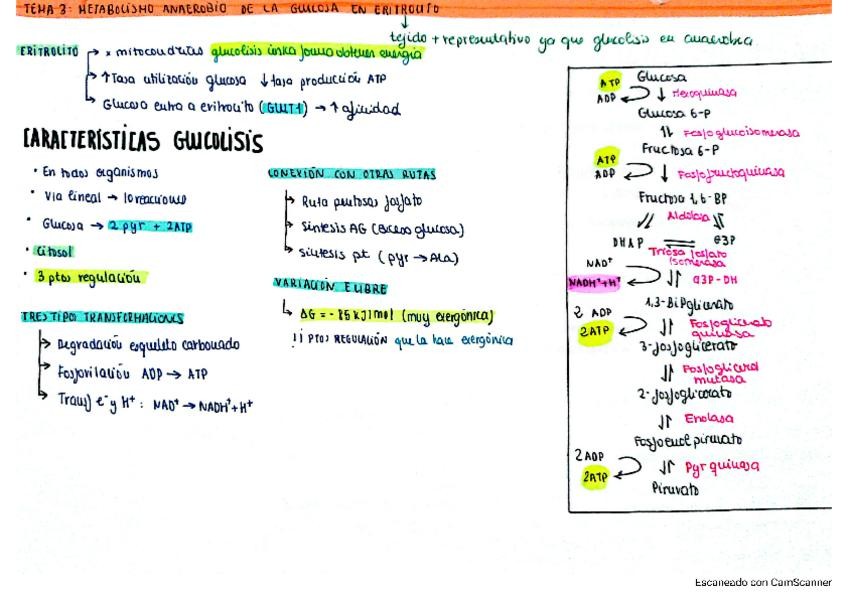 TEMA 3: METABOLISMO ANAEROBIO DE LA GLUCOSA EN ERITROCITO
tejido + representativo ya que glucolisis en anaerobia
ERITROCITO
x mitocondrias glucolisis única forma obtener energía
↑Tasa utilización glucosa ↓tasa producción ATP
Glucosa entra a eritrocito (GLUT1) → ↑ afinidad
CARACTERÍSTICAS GLUCOLISIS
• En todos organismos
• Vía lineal → 10 reacciones
• Glucosa → 2 pyr + 2ATP
• Citosol
• 3 ptos regulación
TRES TIPOS TRANSFORMACIONES
Degradación esqueleto carbonado
Fosforilación ADP → ATP
Transf e⁻ y H⁺: NAD⁺ → NADH⁺+H⁺
CONEXIÓN CON OTRAS RUTAS
Ruta pentosas fosfato
Síntesis AG (exceso glucosa)
Síntesis pt (pyr → Ala)
VARIACIÓN E LIBRE
ΔG = - 85 KJ/mol (muy exergónica)
PTOS REGULACIÓN que la hace exergónica
ATP
Glucosa
ADP
Hexoquinasa
Glucosa 6-P
Fosfoglucoisomerasa
Fructosa 6-P
ATP
ADP
Fosfofructoquinasa
Fructosa 1,6-BP
Aldolasa
DHAP
G3P
Triosa fosfato
isomerasa
NAD⁺
NADH⁺+H⁺
G3P-DH
1,3-BiPglicerato
2 ADP
2ATP
Fosfoglicerato
quinasa
3-fosfoglicerato
Fosfoglicerol
mutasa
2-fosfoglicerato
Enolasa
Fosfoenol piruvato
2 ADP
2ATP
Pyr quinasa
Piruvato
Escaneado con CamScanner